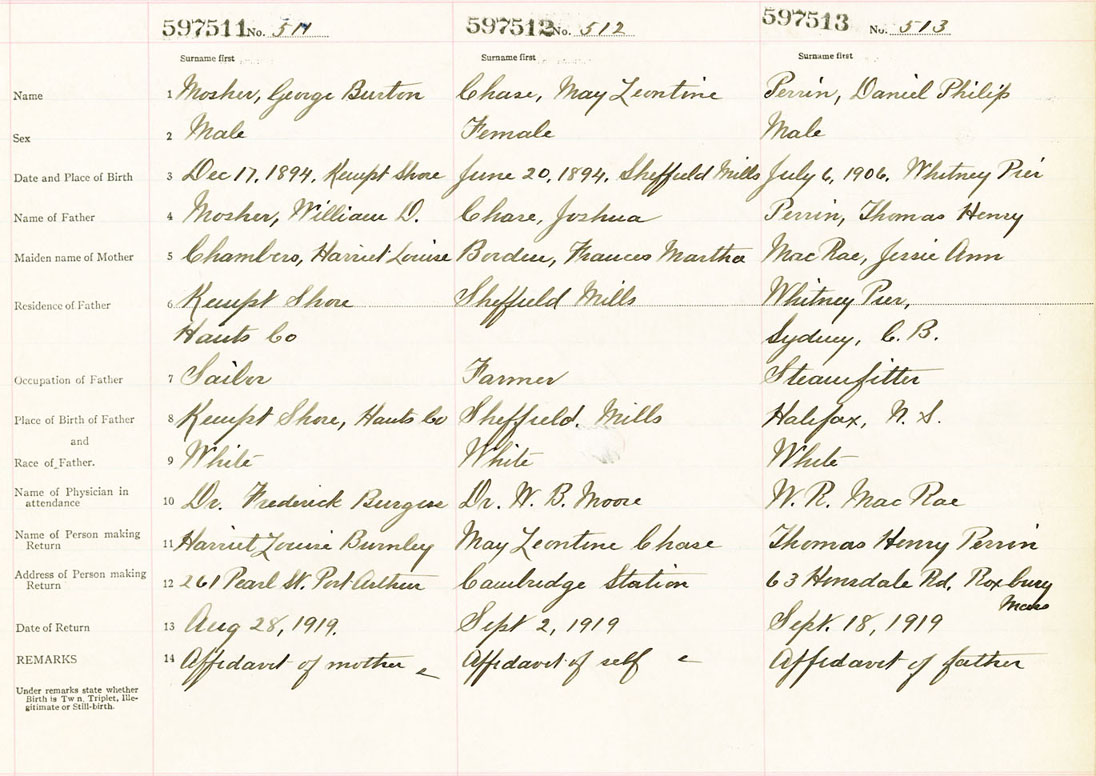 597511 No. 511 597512 No. 512 597513 No. 513
Surname first Surname first Surname first
Name 1 Mosher, George Burton Chase, May Leontine Perrin, Daniel Philip
Sex 2 Male Female Male
Date and Place of Birth 3 Dec 17, 1894. Kempt Shore June 20, 1894. Sheffield Mills July 6, 1906. Whitney Pier
Name of Father 4 Mosher, William D. Chase, Joshua Perrin, Thomas Henry
Maiden name of Mother 5 Chambers, Harriet Louise Borden, Frances Martha MacRae, Jessie Ann
Residence of Father 6 Kempt Shore Sheffield Mills Whitney Pier,
Hants Co Sydney, C. B.
Occupation of Father 7 Sailor Farmer Steamfitter
Place of Birth of Father 8 Kempt Shore, Hants Co Sheffield. Mills Halifax, N. S.
and
Race of Father. 9 White White White
Name of Physician in
attendance 10 Dr. Frederick Burgess Dr. W. B. Moore W. R. MacRae
Name of Person making
Return 11 Harriet Louise Burnley May Leontine Chase Thomas Henry Perrin
Address of Person making
Return 12 261 Pearl St. Port Arthur Cambridge Station 63 Rd, Roxbury
Mass
Date of Return 13 Aug 28, 1919. Sept 2, 1919 Sept. 18, 1919
REMARKS 14 Affidavit of mother Affidavit of self Affidavit of father
Under remarks state whether
Birth is Tw n, Triplet, Ille-
gitimate or Still-birth.